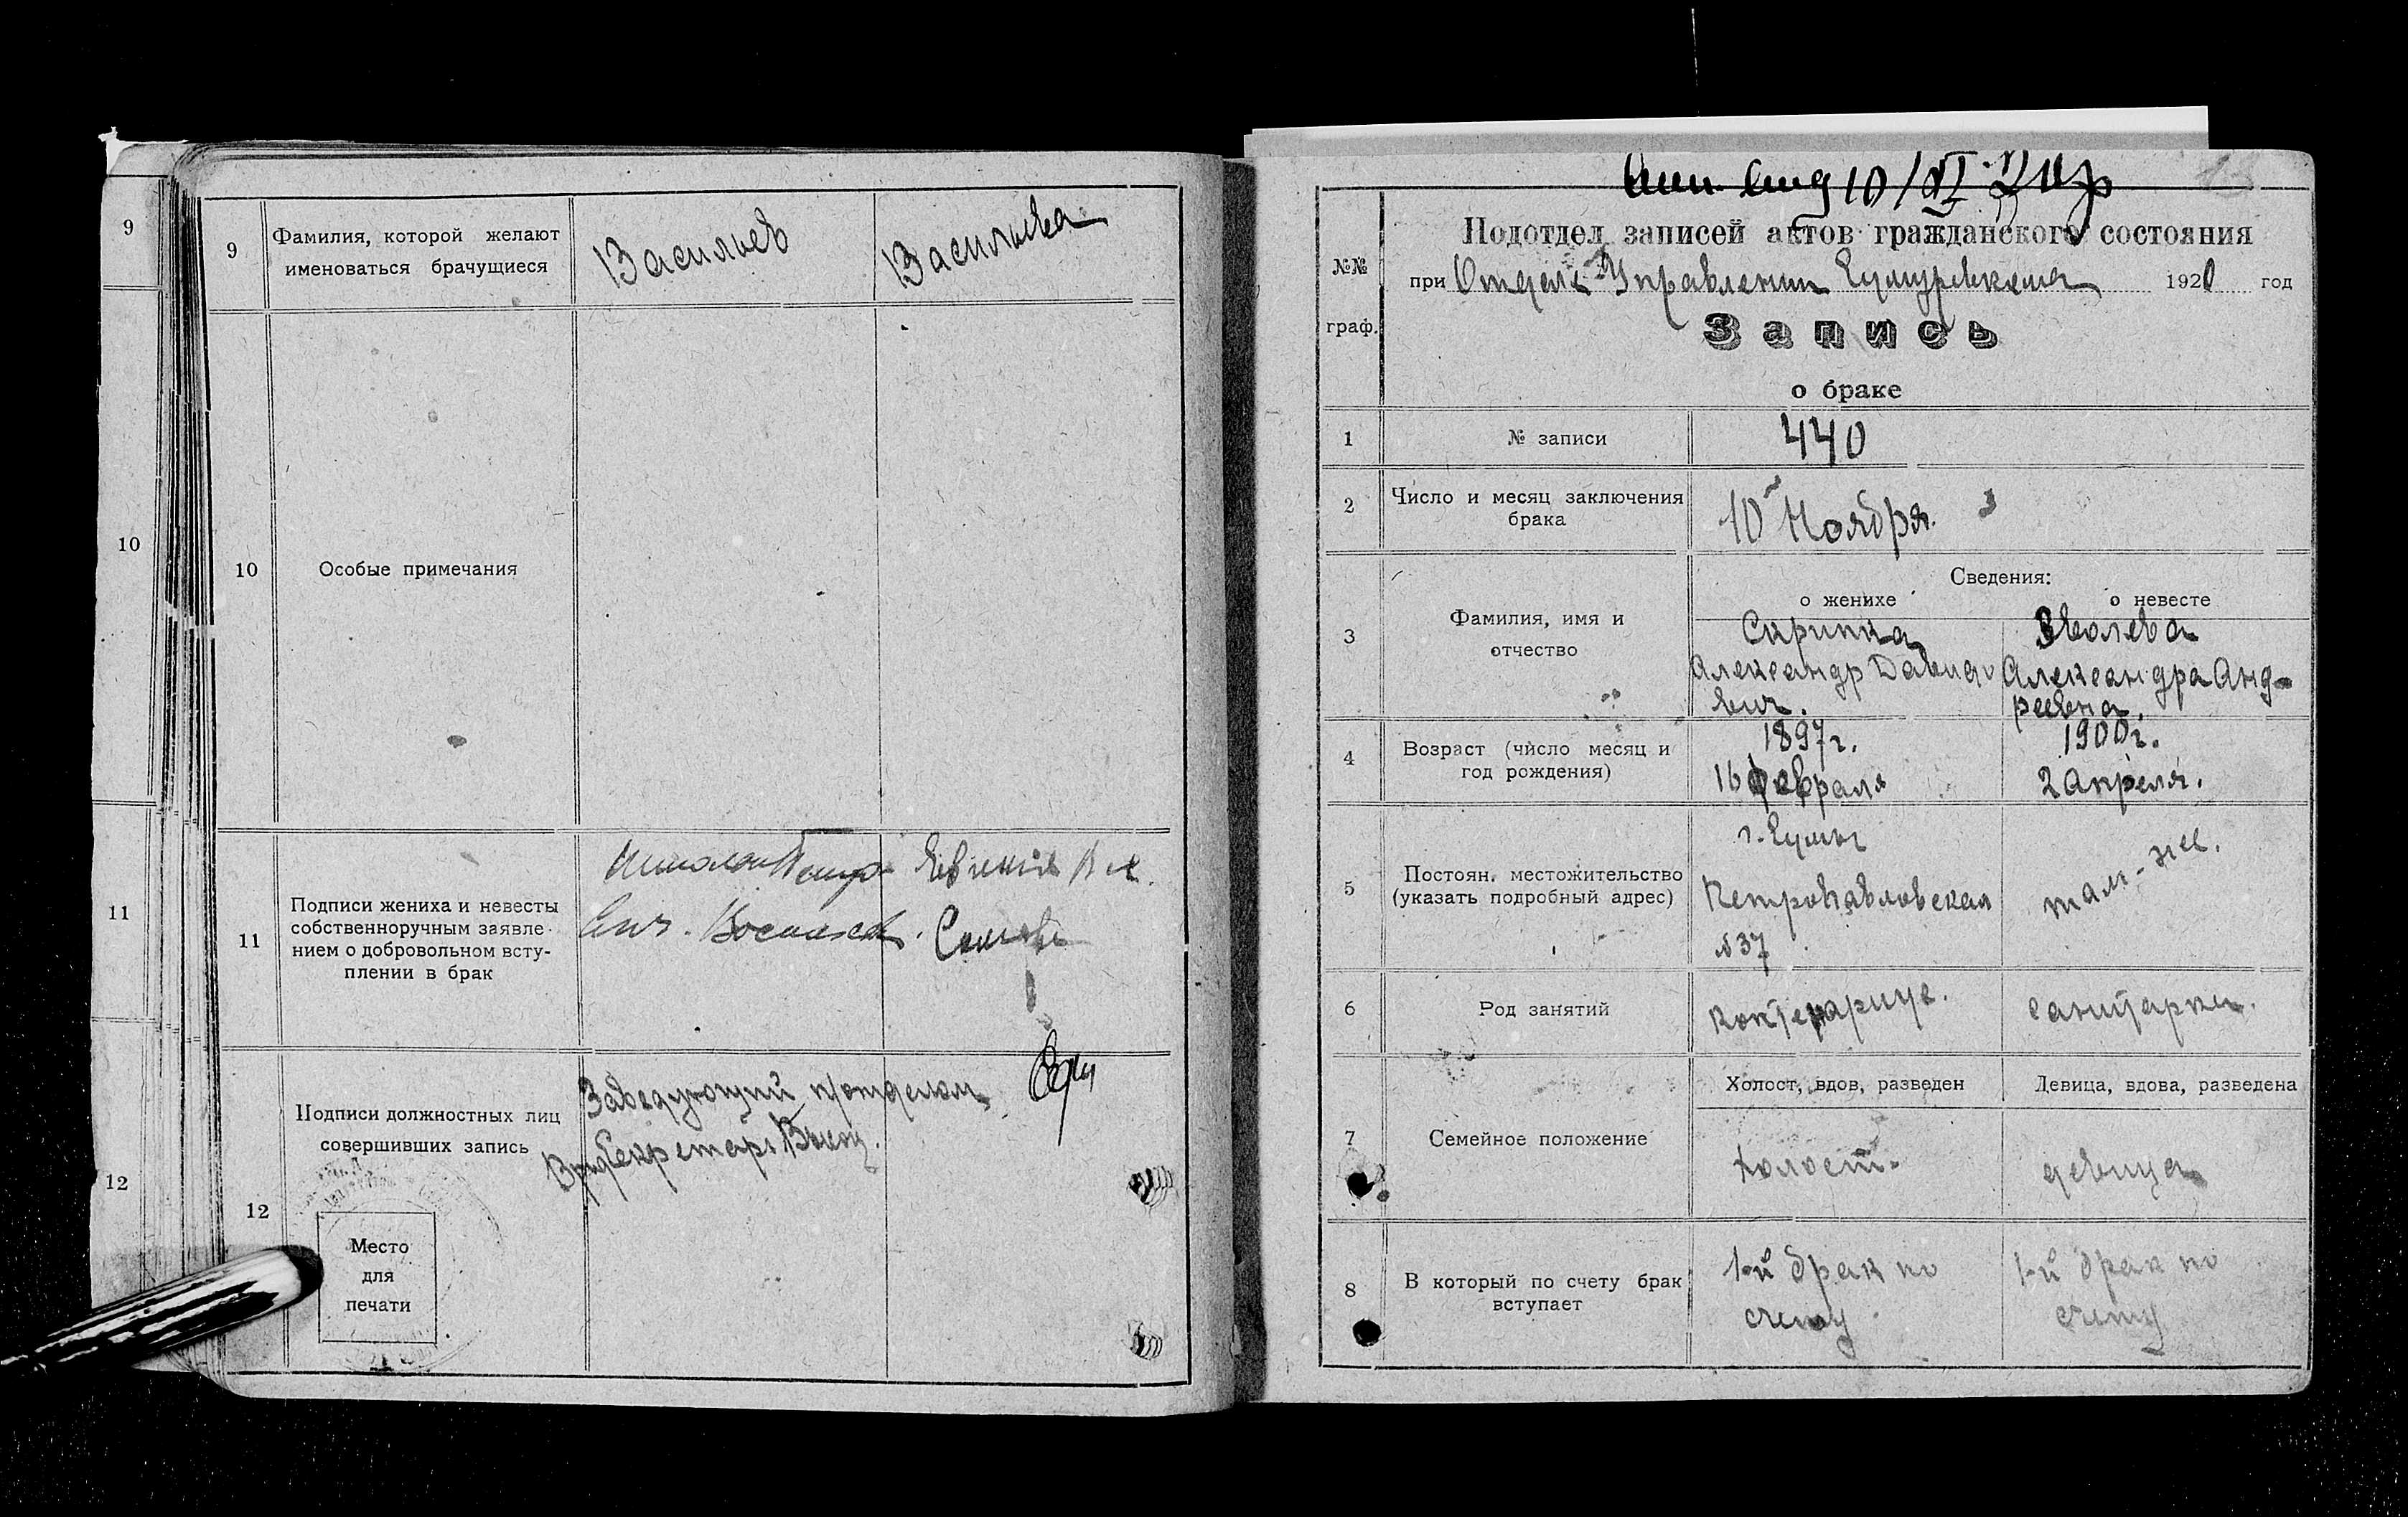 9
10
11
12
9
Фамилия, которой желают
именоваться брачущиеся
Васильев
Васильева
10
Особые примечания
11
Подписи жениха и невесты
собственноручным заявле-
нием о добровольном всту-
плении в брак
12
Подписи должностных лиц
совершивших запись
Заведующий п/отделом
Секретарь
Место
для
печати
10/XI 20 г
Подотдел записей актов гражданского состояния
при Отделе Управления 1920 год
№№
граф.
Запись
о браке
1
№ записи
440
2
Число и месяц заключения
брака
10 Ноября.
Сведения:
о женихе
о невесте
3
Фамилия, имя и
отчество
Скрипка
Александр Давидо
вич.
Александра Анд-
реевна.
4
Возраст (число месяц и
год рождения)
1897 г.
16 февраля
1900 г.
2 Апреля.
5
Постоян. местожительство
(указать подробный адрес)
г. Сумы
Петропавловская
№ 37
там-же.
6
Род занятий
санитарка.
7
Семейное положение
Холост, вдов, разведен
Девица, вдова, разведена
холост.
девица
8
В который по счету брак
вступает
1-й брак по
счету
1-й брак по
счету